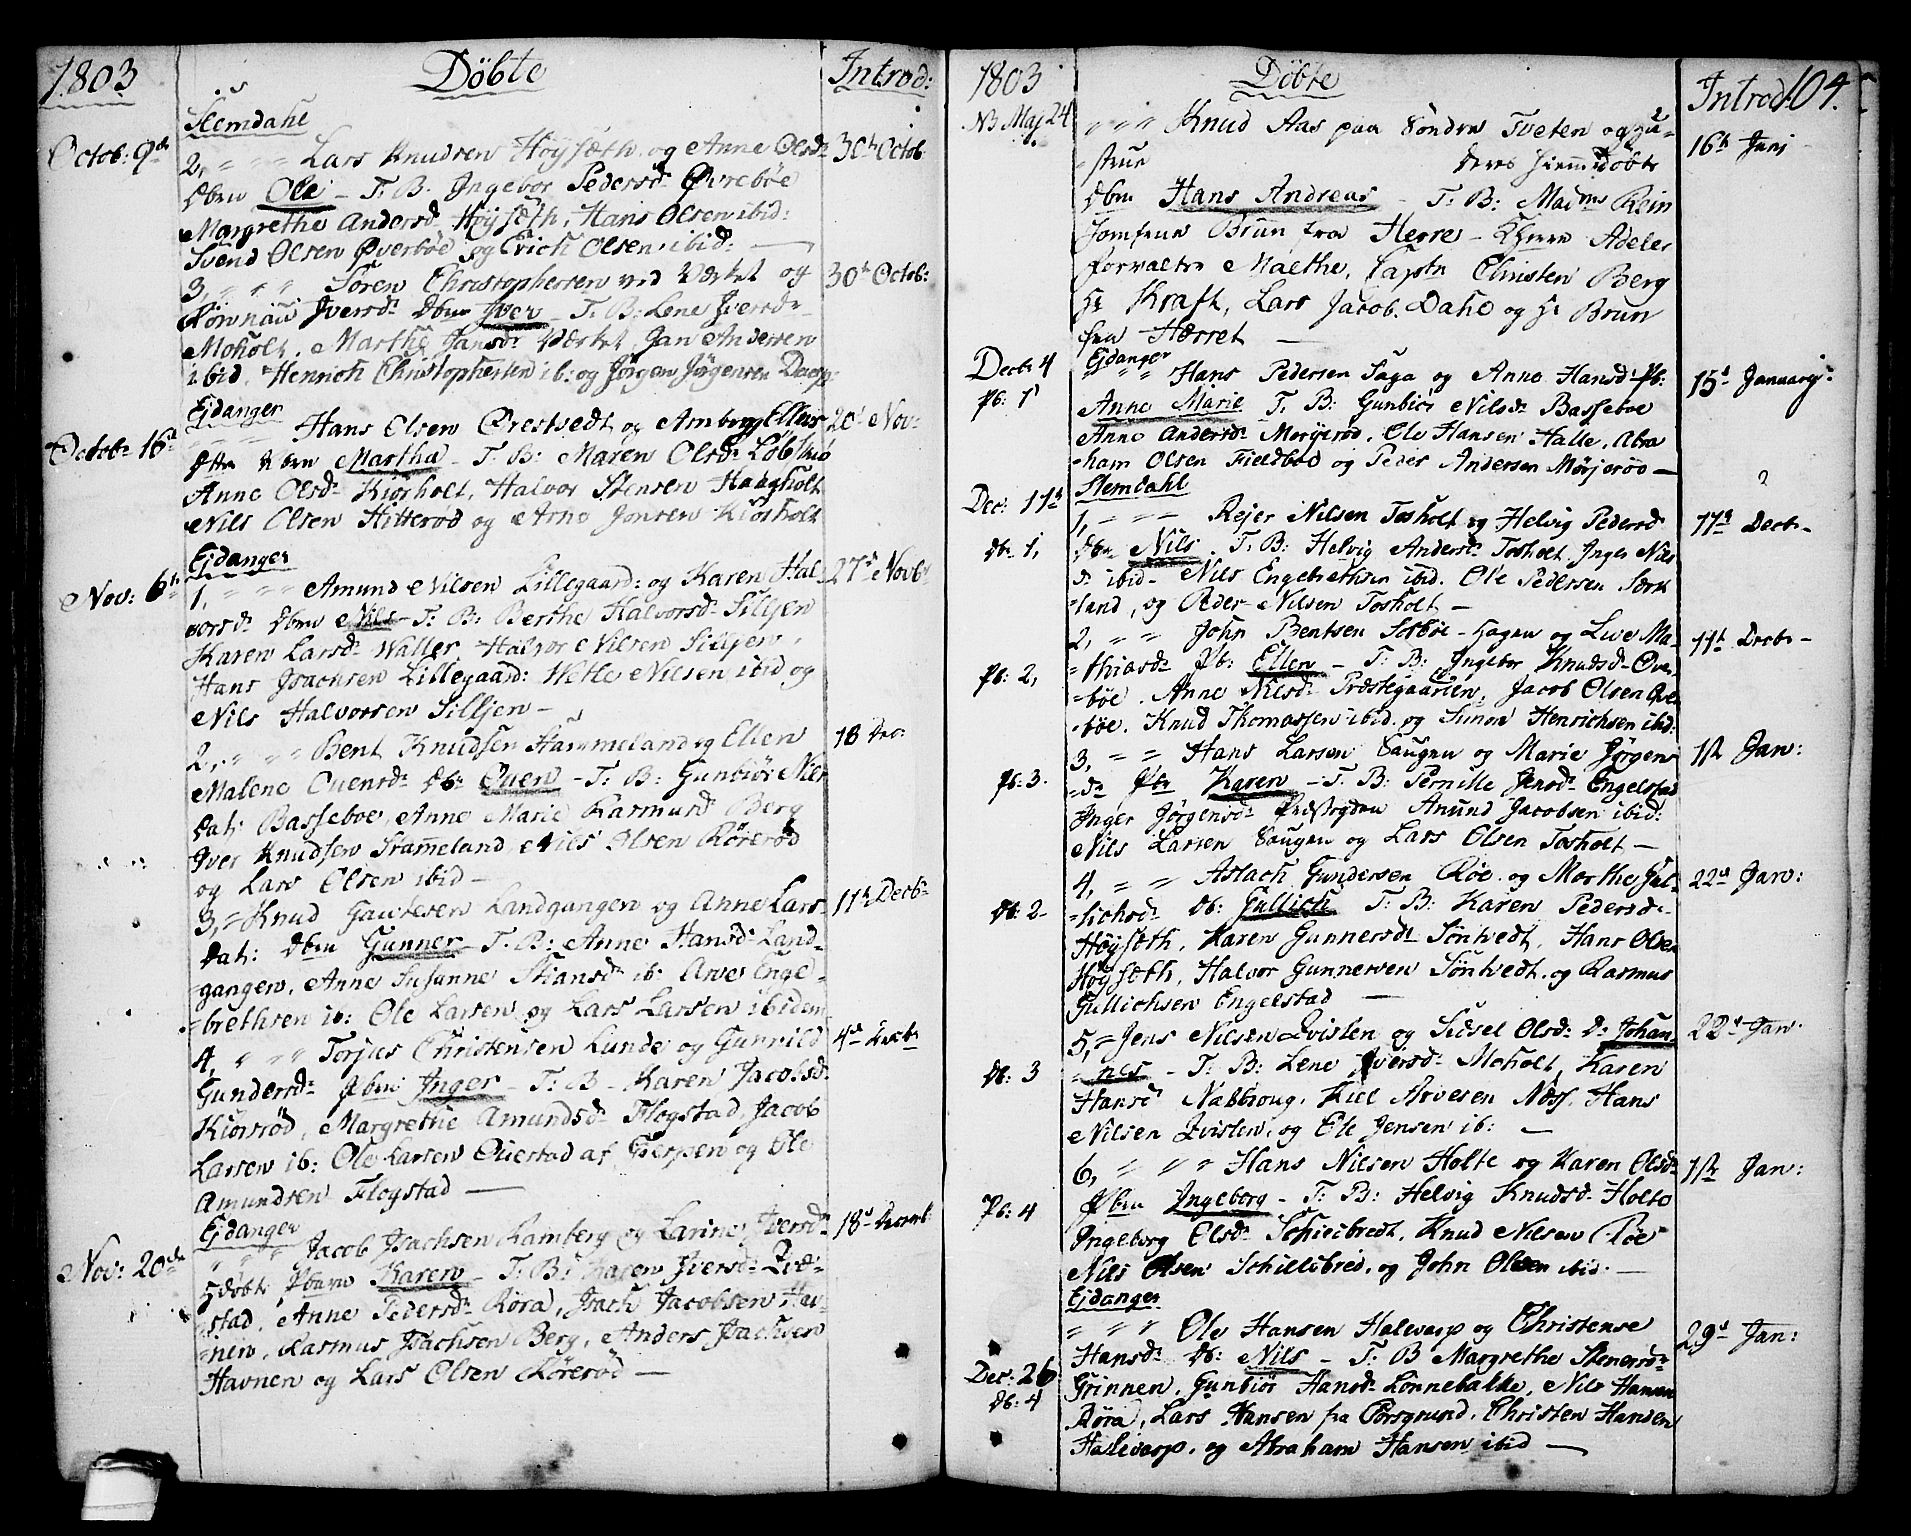 1803 Döbte Introd:
Slemdahl
Octob: 9de 2, " " " Lars Knudsen Höysæth og Anne Olsdr 30t Octob:
dbm Ole - T. B: Ingebor Pedersdr Øvreböe
Margrethe Andersdr Höysæth, Hans Olsen ibid:
Svend Olsen Øverböe og Erich Olsen ibid: —
3, " " " Sören Christophersen ved Værket og 30t Octob:
Rönnau Iversdr dbm Iver - T. B: Lene Iversdr
Moholt, Marthe Jansdr Værket, Jan Andersen
ibid, Henrich Christophersen ib: og Jörgen Jörgensen
Ejdanger
Octobr 16de " " " Hans Olsen Ørestvedt og Amborg Ellevs 20t Nov:
dtr Martha - T. B: Maren Olsdr
Anne Olsdr Kiörholt, Halvor Stensen Haugholt
Nils Olsen Hitteröd og Arne Jonsen Kiörholt
Ejdanger
Nov: 6te 1, " " " Amund Nilsen Lillegaard: og Karen Hal- 27de Novbr
vorsdr dbm Nils - T: B: Berthe Halvorsdr Silljen
Karen Larsdr Waller Halvor Nilsen Silljen,
Hans Isachsen Lillegaard: Wetle Nilsen ibid og
Nils Halvorsen Silljen -
2, " " " Bent Knudsen Stammeland og Ellen 18 Dec:
Malene Ouensdr db: Ouen - T: B: Gunbiör Nils
dat: Basseboe, Anne Marie Rasmusdr Berg
Iver Knudsen Stammeland Nils Olsen Röreröd
og Lars Olsen ibid -
3, " Knud Gautesen Landgangen og Anne Lars- 11te Decbr
dat: dbm Gunner - T: B: Anne Hansdr Land-
gangen, Anne Susanne Stiansdr ib: Arve Enge-
brethsen ib: Ole Larsen og Lars Larsen ibidem
4, " " " Torjus Christensen Lunde og Gunvild 4de Decbr
Gundersdr Pbm Inger - T: B - Karen Jacobsd:
Kiörröd, Margrethe Amundsdr Flogstad, Jacob
Larsen ib: Ole Larsen Øuestad af Gierpen og Ole
Amundsen Flogstad —
Ejdanger
Nov: 20de " " " Jacob Isachsen Lamberg og Larine Iversdr 18de Decemb
Pbarn Karen - T: B: Karen Iversdr
stad, Anne Pedersdr Röra, Isach Jacobsen Hav-
nen, Rasmus Isachsen Berg, Anders Isachsen
Havnen og Lars Olsen Röreröd —
1803 Döbte Introd: 104.
NB Maj 24 " " " Knud Aas paa Söndre Tveten og Hu- 16te Junj
strue deres hiemmedöbte
dbm Hans Andreas - T: B: Madme Rein
Jomfrue Brun fra Herre - Adeler
Forvalter Maethe, Captn Christen Berg
Hr Kraft, Lars Jacob Dahl og Hr Brun
fra Hærret —
Decbr 4 Ejdanger
Pb: 1 " " " Hans Pedersen Saga og Anne Hansdr Pb: 15de Januarij
Anne Marie T. B: Gunbiör Nilsdr Basseboe
Anne Andersdr Möryeröd, Ole Hansen Halle, Abra
ham Olsen Fieldbod og Peder Andersen Mörjeröd —
Slemdahl
Dec: 17de 1, " " " Rejer Nilsen Tosholt og Helvig Pedersd 17de Decbr
db: 1, dbm Nils. T. B: Helvig Andersdr Tosholt, Inger Nils
dr ibid - Nils Engebrethsen ibid. Ole Pedersen
land, og Peder Nilsen Tosholt —
2, " " John Bentsen og Live Ma- 11te Decbr
Pb: 2, thiasdr Pb: Ellen - T: B: Ingebor Knudsdr Øver
böe, Anne Nilsdr Præstegaarden, Jacob Olsen Øver
böe, Knud Thomassen ibid og Simon Henrichsen ibid:
3, " " Hans Larsen Saugen og Marie Jörgens 1ste Jan:
Pb: 3. dr Pbr Karen - T: B: Pernille Jensdr Engelstad
Inger Jörgensdr Amund Jacobsen ibid:
Nils Larsen Saugen og Lars Olsen Tosholt —
4, " " Aslach Gundersen Röe og Marthe Gul- 22de Jan:
Db: 2 lichsdr Db: Gullich T: B: Karen Pedersdr
Höysæth, Karen Gunnersdr Söntvedt, Hans Olsen
Höysæth, Halvor Gunnersen Söntvedt, og Rasmus
Gullichsen Engelstad —
5, " Jens Nilsen Qvisten og Sidsel Olsdr D: Johan- 22de Jan:
Db: 3 nes - T: B: Lene Iversdr Moholt, Karen
Hansdr Nabbroug, Kiel Arvesen Næss, Hans
Nilsen Qvisten, og Ole Jensen ib: —
6, " " " Hans Nilsen Holte og Karen Olsdr 1ste Jan:
Pb: 4 Pbm Ingeborg - T: B: Helvig Knudsdr Holte
Ingeborg Olsdr Schielbredt, Knud Nilsen Röe
Nils Olsen Schillebred, og John Olsen ibid. —
Ejdanger
" " " Ole Hansen Halevarp og Christense 29de Jan:
Dec: 26 Hansdr Db: Nils - T: B Margrethe Stenersdr
Db: 4 Grinnen, Gunbiör Hansdr Lönnebakke, Nils Hansen
Röra, Lars Hansen fra Porsgrund, Christen Hansen
Halevarp, og Abraham Hansen ibid —